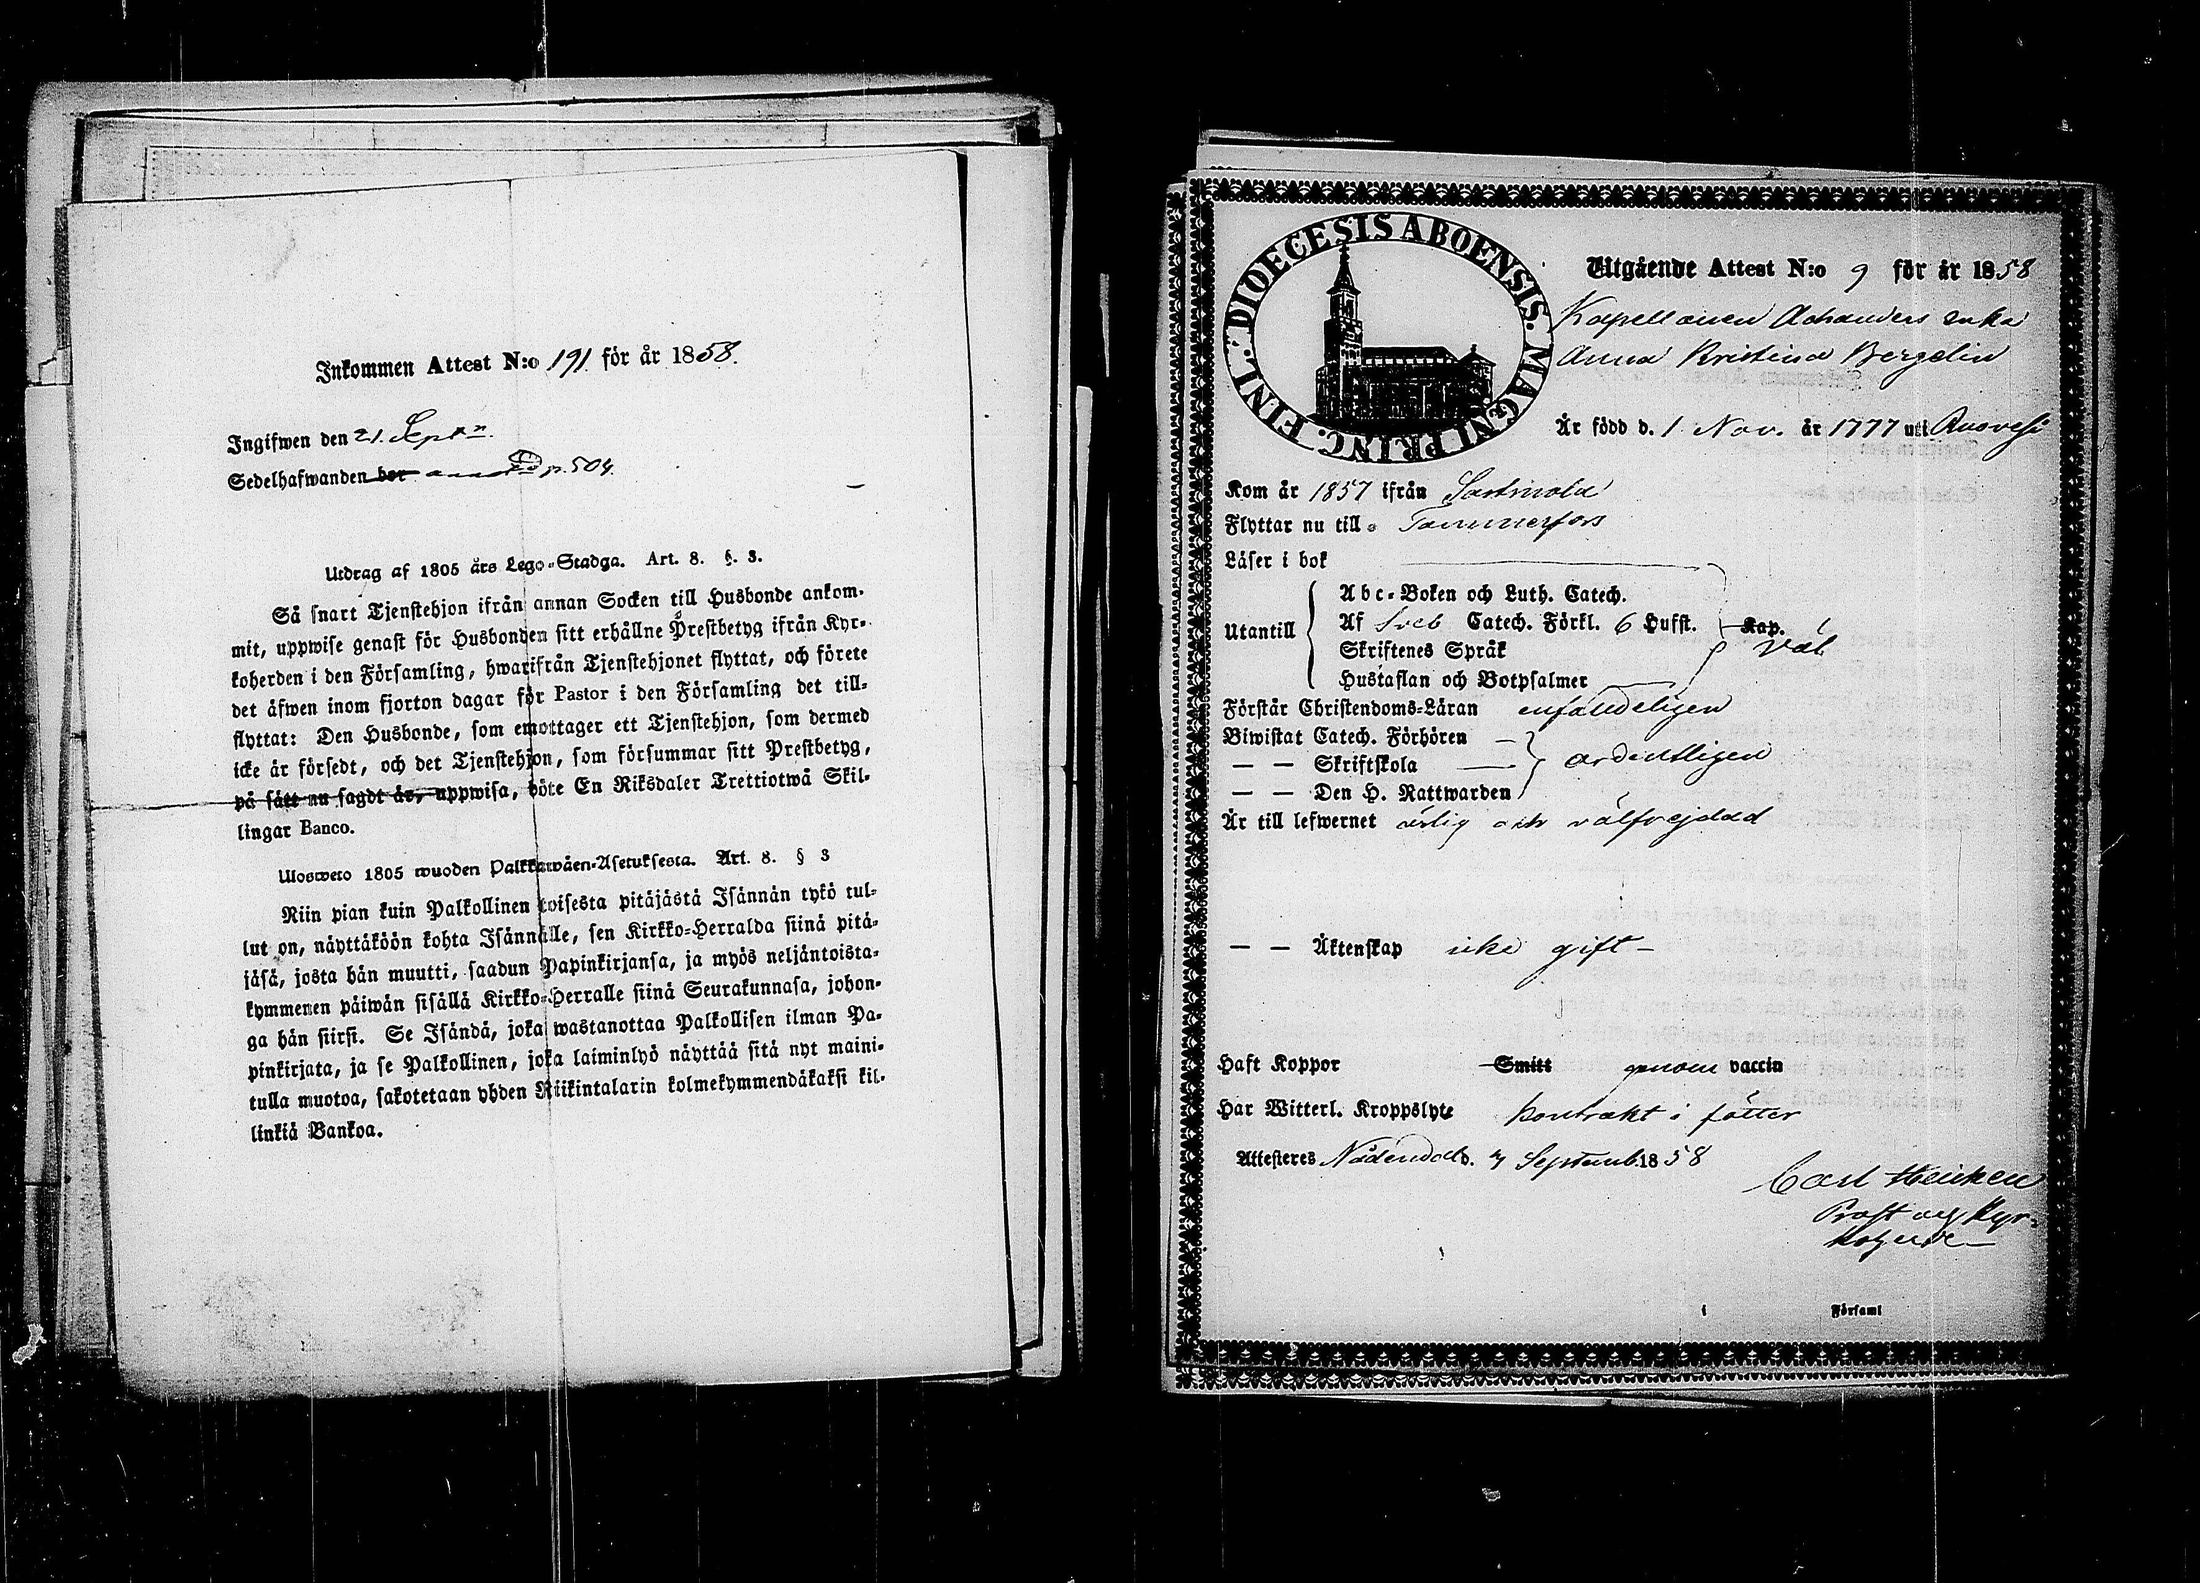 Inkommen Attest N:o 191 för år 1858.
Ingifwen den 21. Sept.
Sedelhafwanden bor p. 504.
Utdrag af 1805 års Lego-Stadga. Art. 8. §. 3.
Så snart Tjenstehjon ifrån annan Socken till Husbonde ankom-
mit, uppwise genast för Husbonden sitt erhållne Prestbetyg ifrån Kyr-
koherden i den Församling, hwarifrån Tjenstehjonet flyttat, och förete
det äfwen inom fjorton dagar för Pastor i den Församling det till-
flyttat: Den Husbonde, som emottager ett Tjenstehjon, som dermed
icke är försedt, och det Tjenstehjon, som försummar sitt Prestbetyg,
på sätt nu sagdt är, uppwisa, böte En Riksdaler Trettiotwå Skil-
lingar Banco.
Ulosweto 1805 wuoden Palkkawäen-Asetuksesta. Art. 8. § 3
Niin pian kuin Palkollinen toisesta pitäjästä Isännän tykö tul-
lut on, näyttäköön kohta Isännälle, sen Kirkko-Herralda siinä pitä-
jäsä, josta hän muutti, saadun Papinkirjansa, ja myös neljäntoista-
kymmenen päiwän sisällä Kirkko-Herralle siinä Seurakunnasa, johon-
ga hän siirsi. Se Isändä, joka wastanottaa Palkollisen ilman Pa-
pinkirjata, ja se Palkollinen, joka laiminlyö näyttää sitä nyt maini-
tulla muotoa, sakotetaan yhden Riikintalarin kolmekymmendäkaksi kil-
linkiä Bankoa.
DIOECESIS ABOENSIS. MAGNI PRINC. FINL.
Utgående Attest N:o 9 för år 1858
Kapellanen Achanders enka
Anna Kristina Bergelin
Är född d. 1 Nov. år 1777 uti Ruovesi
Kom år 1857 ifrån Sastmola
Flyttar nu till Tammerfors
Läser i bok
Abc-Boken och Luth. Catech.
Utantill Af Sveb Catech. Förkl. 6 Hufst. Kap.
väl
Skriftenes Språk
Hustaflan och Botpsalmer
Förstår Christendoms-Läran enfaldeligen
Biwistat Catech. Förhören
— — Skriftskola ordentligen
— — Den H. Nattwarden
Är till lefwernet ärlig och välfrejdad
— — Äktenskap icke gift
Haft Koppor Smitt genom vaccin
Har Witterl. Kroppslyte kontrakt i fötter
Attesteres Nådendal d. 7 Septemb. 1858
Carl Heinken
Prost och Kyr-
koherde
i Församl